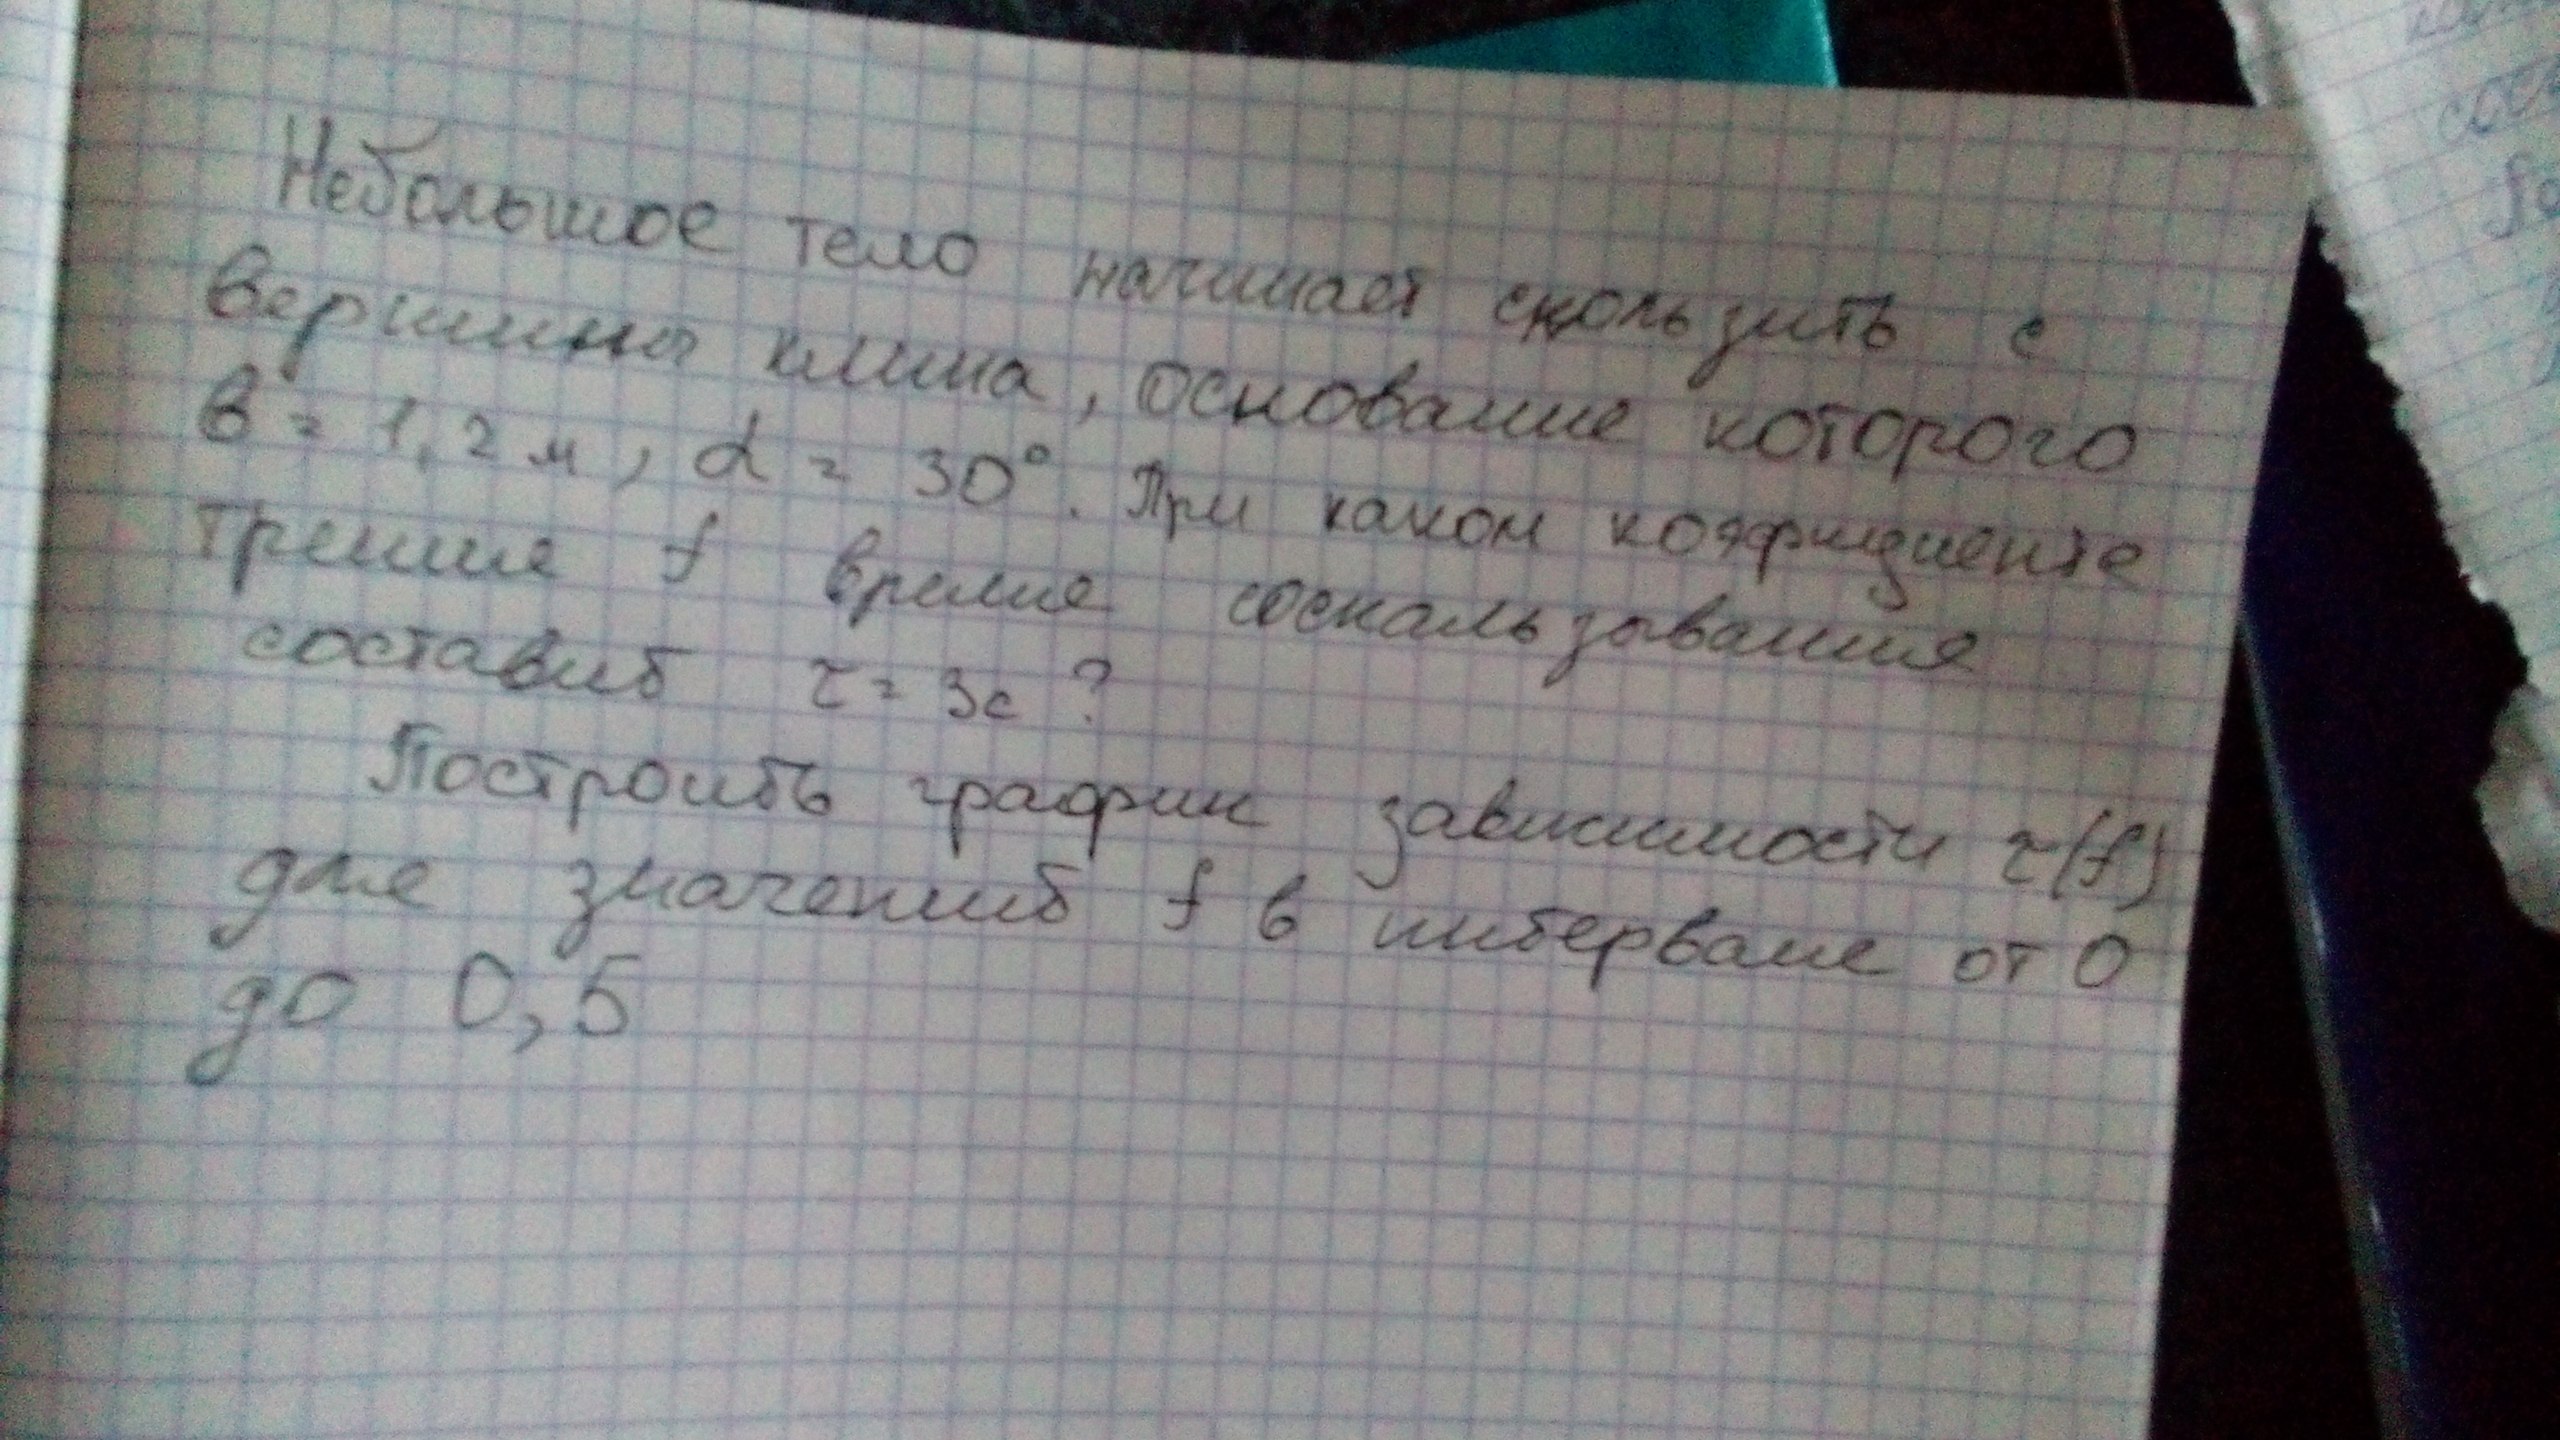 Небольшое тело начинает скользить с
вершины клина, основание которого
в = 1,2 м, α = 30°. При каком коэффициенте
трения f время соскальзывания
составит τ = 3с ?
Построить график зависимости τ(f)
для значений f в интервале от 0
до 0,5